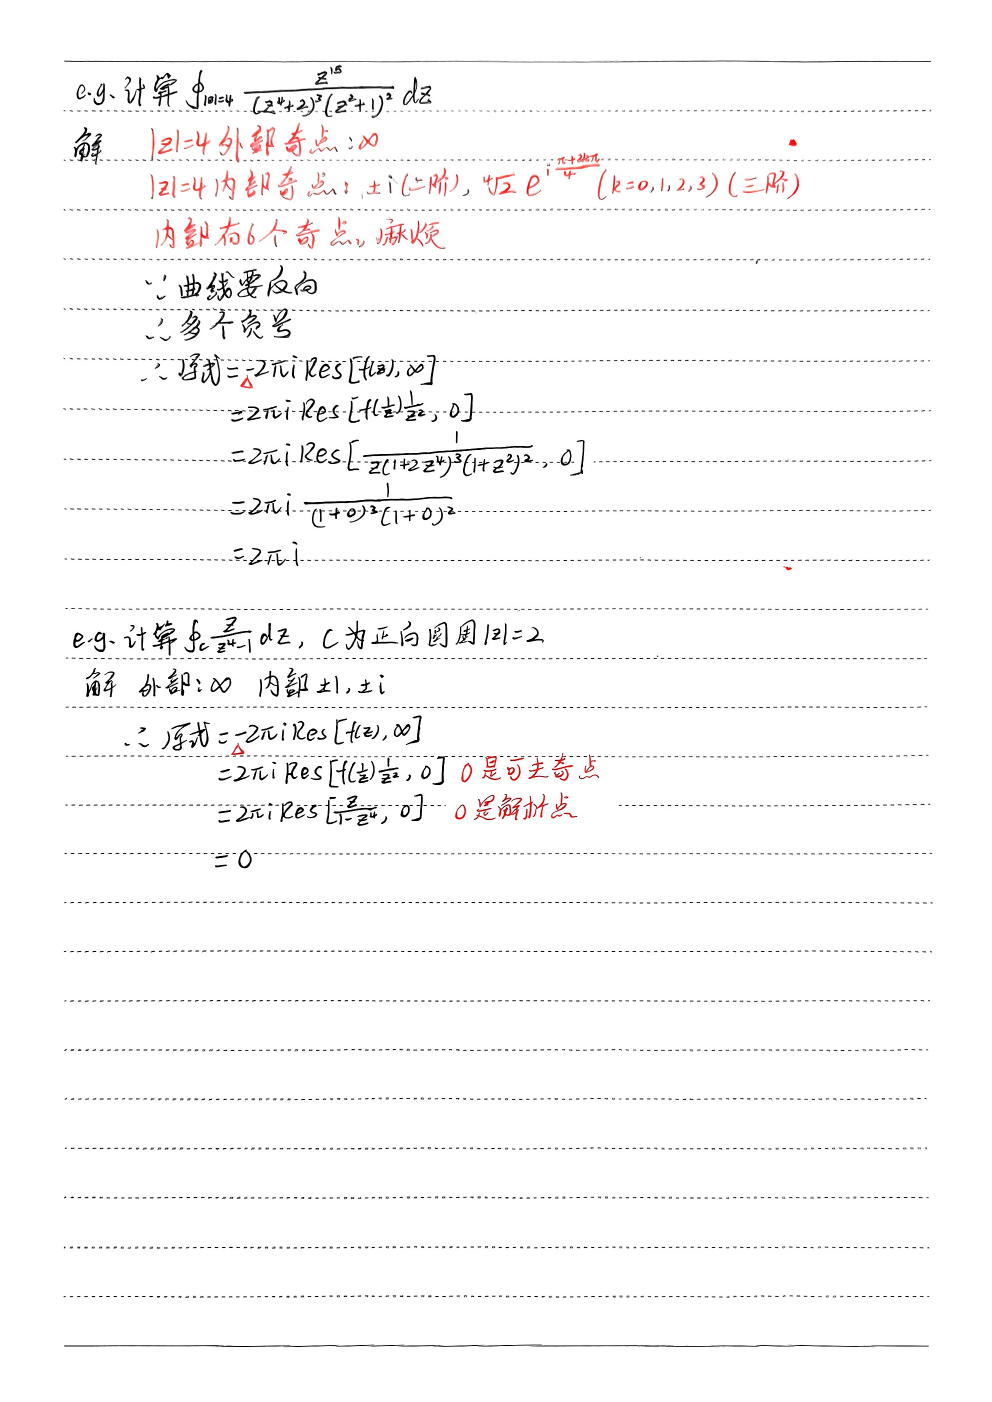 e.g. 计算 ∮|z|=4 z¹⁵/((z⁴+2)³(z²+1)²) dz
解 |z|=4外部奇点:∞
|z|=4内部奇点: ±i(二阶), ⁴√2 e^(i(π+2kπ)/4) (k=0,1,2,3)(三阶)
内部有6个奇点, 麻烦
∵曲线要反向
∴多个负号
∴原式=-2πi Res[f(z),∞]
=2πi Res[f(1/z)1/z², 0]
=2πi Res[1/(z(1+2z⁴)³(1+z²)²), 0]
=2πi 1/((1+0)³(1+0)²)
=2πi
e.g. 计算∮c z/(z⁴-1) dz, C为正向圆周|z|=2
解 外部:∞ 内部±1,±i
∴原式=-2πi Res[f(z),∞]
=2πi Res[f(1/z)1/z², 0] 0是可去奇点
=2πi Res[z/(1-z⁴), 0] 0是解析点
=0